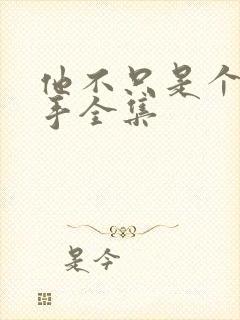 他不只是个
手全集
是今